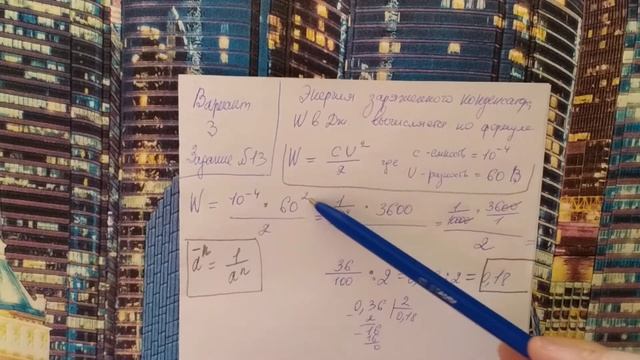 Вариант
3
Задание №13
Энергия заряженного конденсат.
W в Дж вычисляется по формуле
W = CU²/2 где C - емкость = 10⁻⁴
U - разность = 60 В
W = 10⁻⁴ · 60² / 2 = 1/ · 3600 = 1/1000 · 3600/1 / 2 =
a⁻ⁿ = 1/aⁿ
36/100 : 2 = : 2 = 0,18
0,36 | 2
0,18